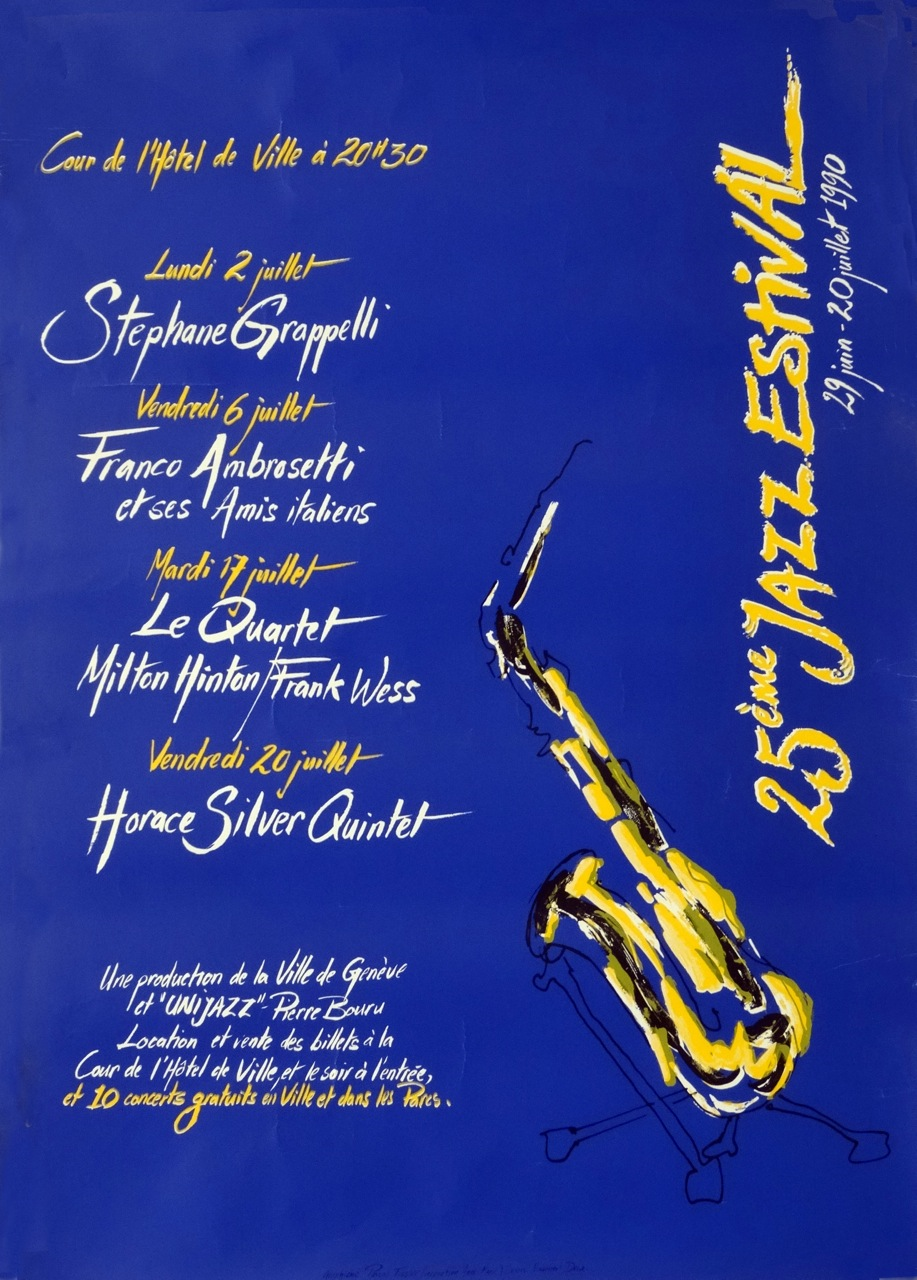 Cour de l'Hôtel de Ville à 20H30
Lundi 2 juillet
Stephane Grappelli
Vendredi 6 juillet
Franco Ambrosetti
et ses Amis italiens
Mardi 17 juillet
Le Quartet
Milton Hinton/Frank Wess
Vendredi 20 juillet
Horace Silver Quintet
Une production de la Ville de Genève
et "UNIJAZZ" - Pierre Bouru
Location et vente des billets à la
Cour de l'Hôtel de Ville, et le soir à l'entrée,
et 10 concerts gratuits en Ville et dans les Parcs.
25ème JAZZ EStivAL
29 juin - 20 juillet 1990